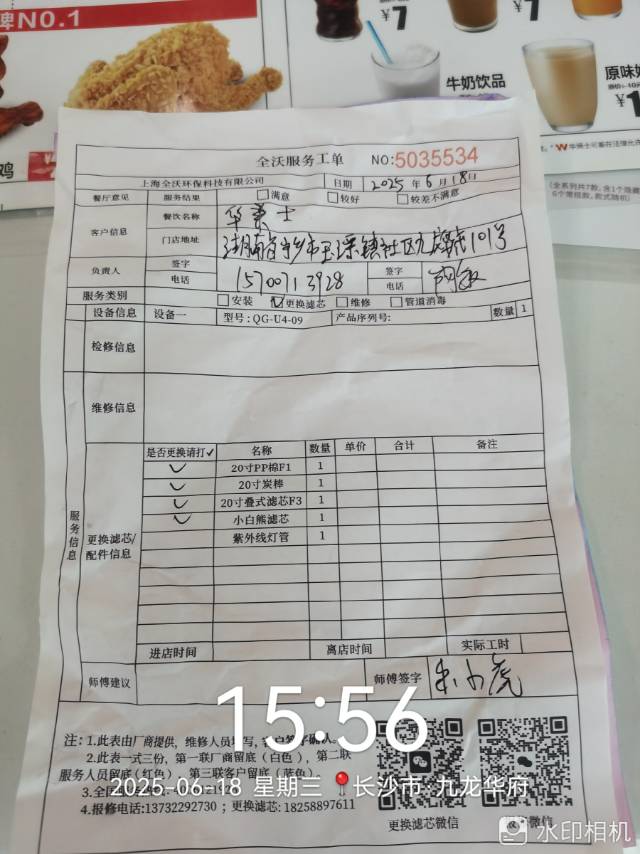 牌NO.1
¥7
¥7
牛奶饮品
原味奶
鸡
W华莱士可客在法律允许
(全系列共7款,含1个隐藏
6个常规款,款式随机)
全沃服务工单 NO:5035534
上海全沃环保科技有限公司 日期 2025年6月18日
餐厅意见 服务结果 满意 较好 较差不满意
客户信息 餐饮名称 华莱士
门店地址 湖南省宁乡市玉潭镇社区 101号
负责人 签字 签字
电话 15700713928 电话
服务类别 安装 更换滤芯 维修 管道消毒
设备信息 设备一 型号:QG-U4-09 产品序列号: 数量 1
检修信息
维修信息
服务信息
更换滤芯/配件信息
是否更换请打✓ 名称 数量 单价 合计 备注
✓ 20寸PP棉F1 1
✓ 20寸炭棒 1
✓ 20寸叠式滤芯F3 1
✓ 小白熊滤芯 1
紫外线灯管 1
进店时间 离店时间 实际工时
师傅建议 师傅签字 朱小虎
15:56
注:1.此表由厂商提供,维修人员填写,客户签字确认。
2.此表一式三份,第一联厂商留底(白色),第二联
服务人员留底(红色),第三联客户留底(蓝色)。
3.全国
2025.06.18 星期三 长沙市·九龙华府
4.报修电话:13732292730;更换滤芯:18258897611
更换滤芯微信
水印相机